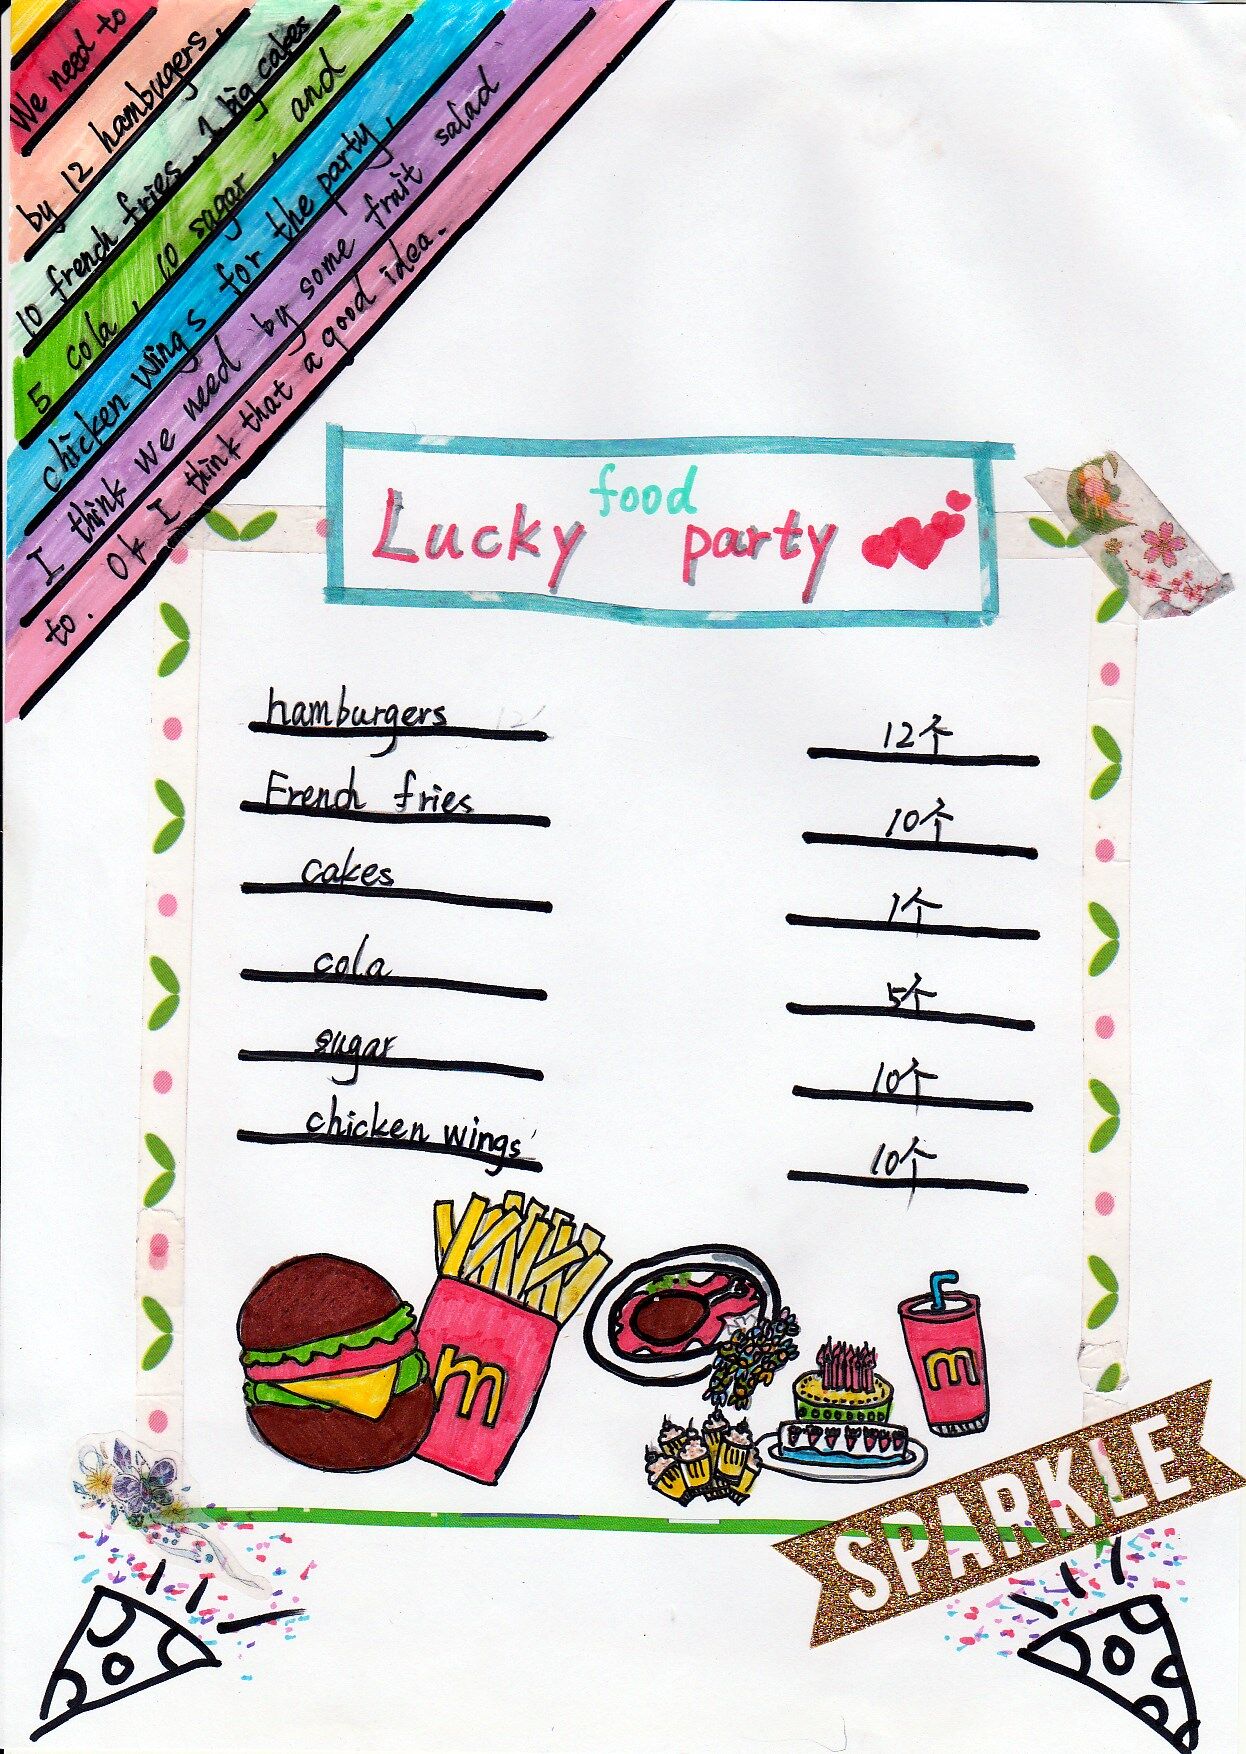 We need to
by 12 hamburgers,
10 french fries, 1 big cakes
5 cola, 10 sagar, and
chicken wings for the party,
I think we need by some fruit salad
to. Ok I think that a good idea.
food
Lucky party
hamburgers 12个
French fries 10个
cakes 1个
cola 5个
sugar 10个
chicken wings 10个
m
m
SPARKLE